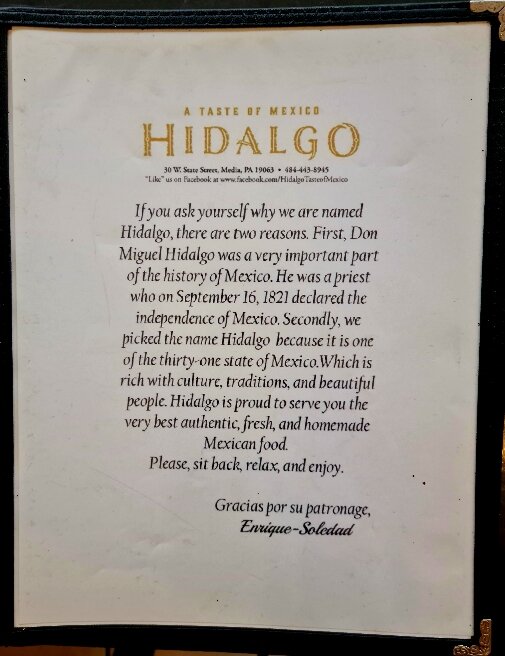 A TASTE OF MEXICO
HIDALGO
30 W. State Street, Media, PA 19063 • 484-443-8945
"Like" us on Facebook at www.facebook.com/HidalgoTasteofMexico
If you ask yourself why we are named
Hidalgo, there are two reasons. First, Don
Miguel Hidalgo was a very important part
of the history of Mexico. He was a priest
who on September 16, 1821 declared the
independence of Mexico. Secondly, we
picked the name Hidalgo because it is one
of the thirty-one state of Mexico.Which is
rich with culture, traditions, and beautiful
people. Hidalgo is proud to serve you the
very best authentic, fresh, and homemade
Mexican food.
Please, sit back, relax, and enjoy.
Gracias por su patronage,
Enrique-Soledad